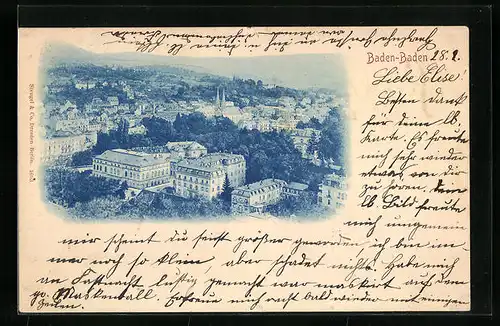 Baden-Baden 28.2.
Liebe Elise!
Besten Dank
für deine lb.
Karte. Es freute
mich sehr wieder
etwas von dir
zu hören. Dein
lb. Bild freute
mich ungemein
mir scheint du seist größer geworden, ich bin im
mer noch so klein, aber schadet nichts. Habe mich
an Fastnacht lustig gemacht war maskirt auf dem
gr. Maskenball. Erfreue mich auch bald wieder mit einigen
Zeilen.
Stengel & Co., Dresden Berlin.